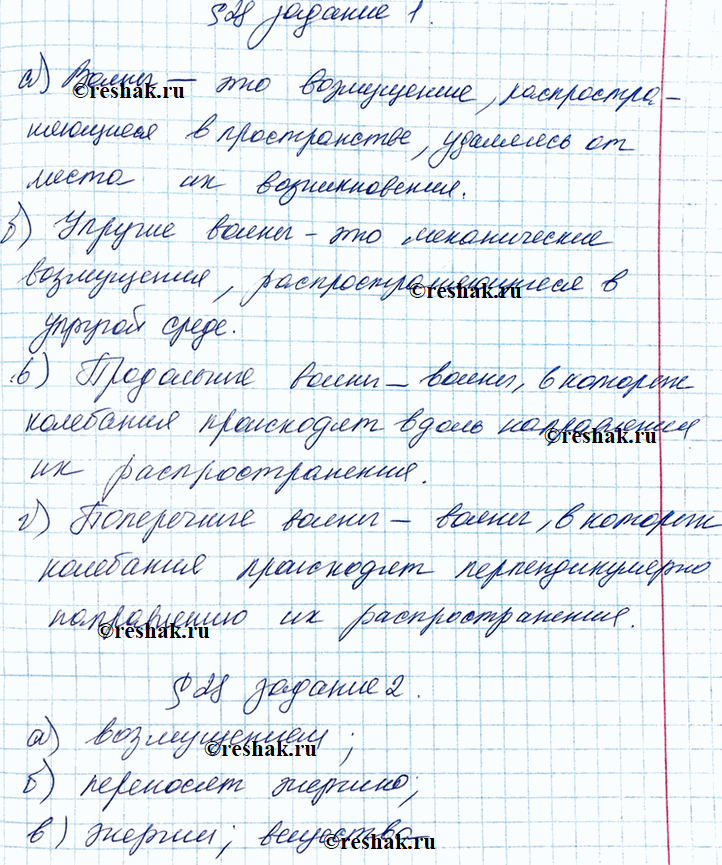 §28 задание 1.
а) Волны – это возмущение, распростра-
©reshak.ru
няющиеся в пространстве, удаляясь от
места их возникновения.
б) Упругие волны – это механические
возмущения, распространяющиеся в
©reshak.ru
упругой среде.
в) Продольные волны – волны, в которых
колебания происходят вдоль направления
©reshak.ru
их распространения.
г) Поперечные волны – волны, в которых
колебания происходят перпендикулярно
направлению их распространения.
©reshak.ru
§28 задание 2.
а) возмущением;
©reshak.ru
б) переносят энергию;
в) энергии; вещества–
©reshak.ru